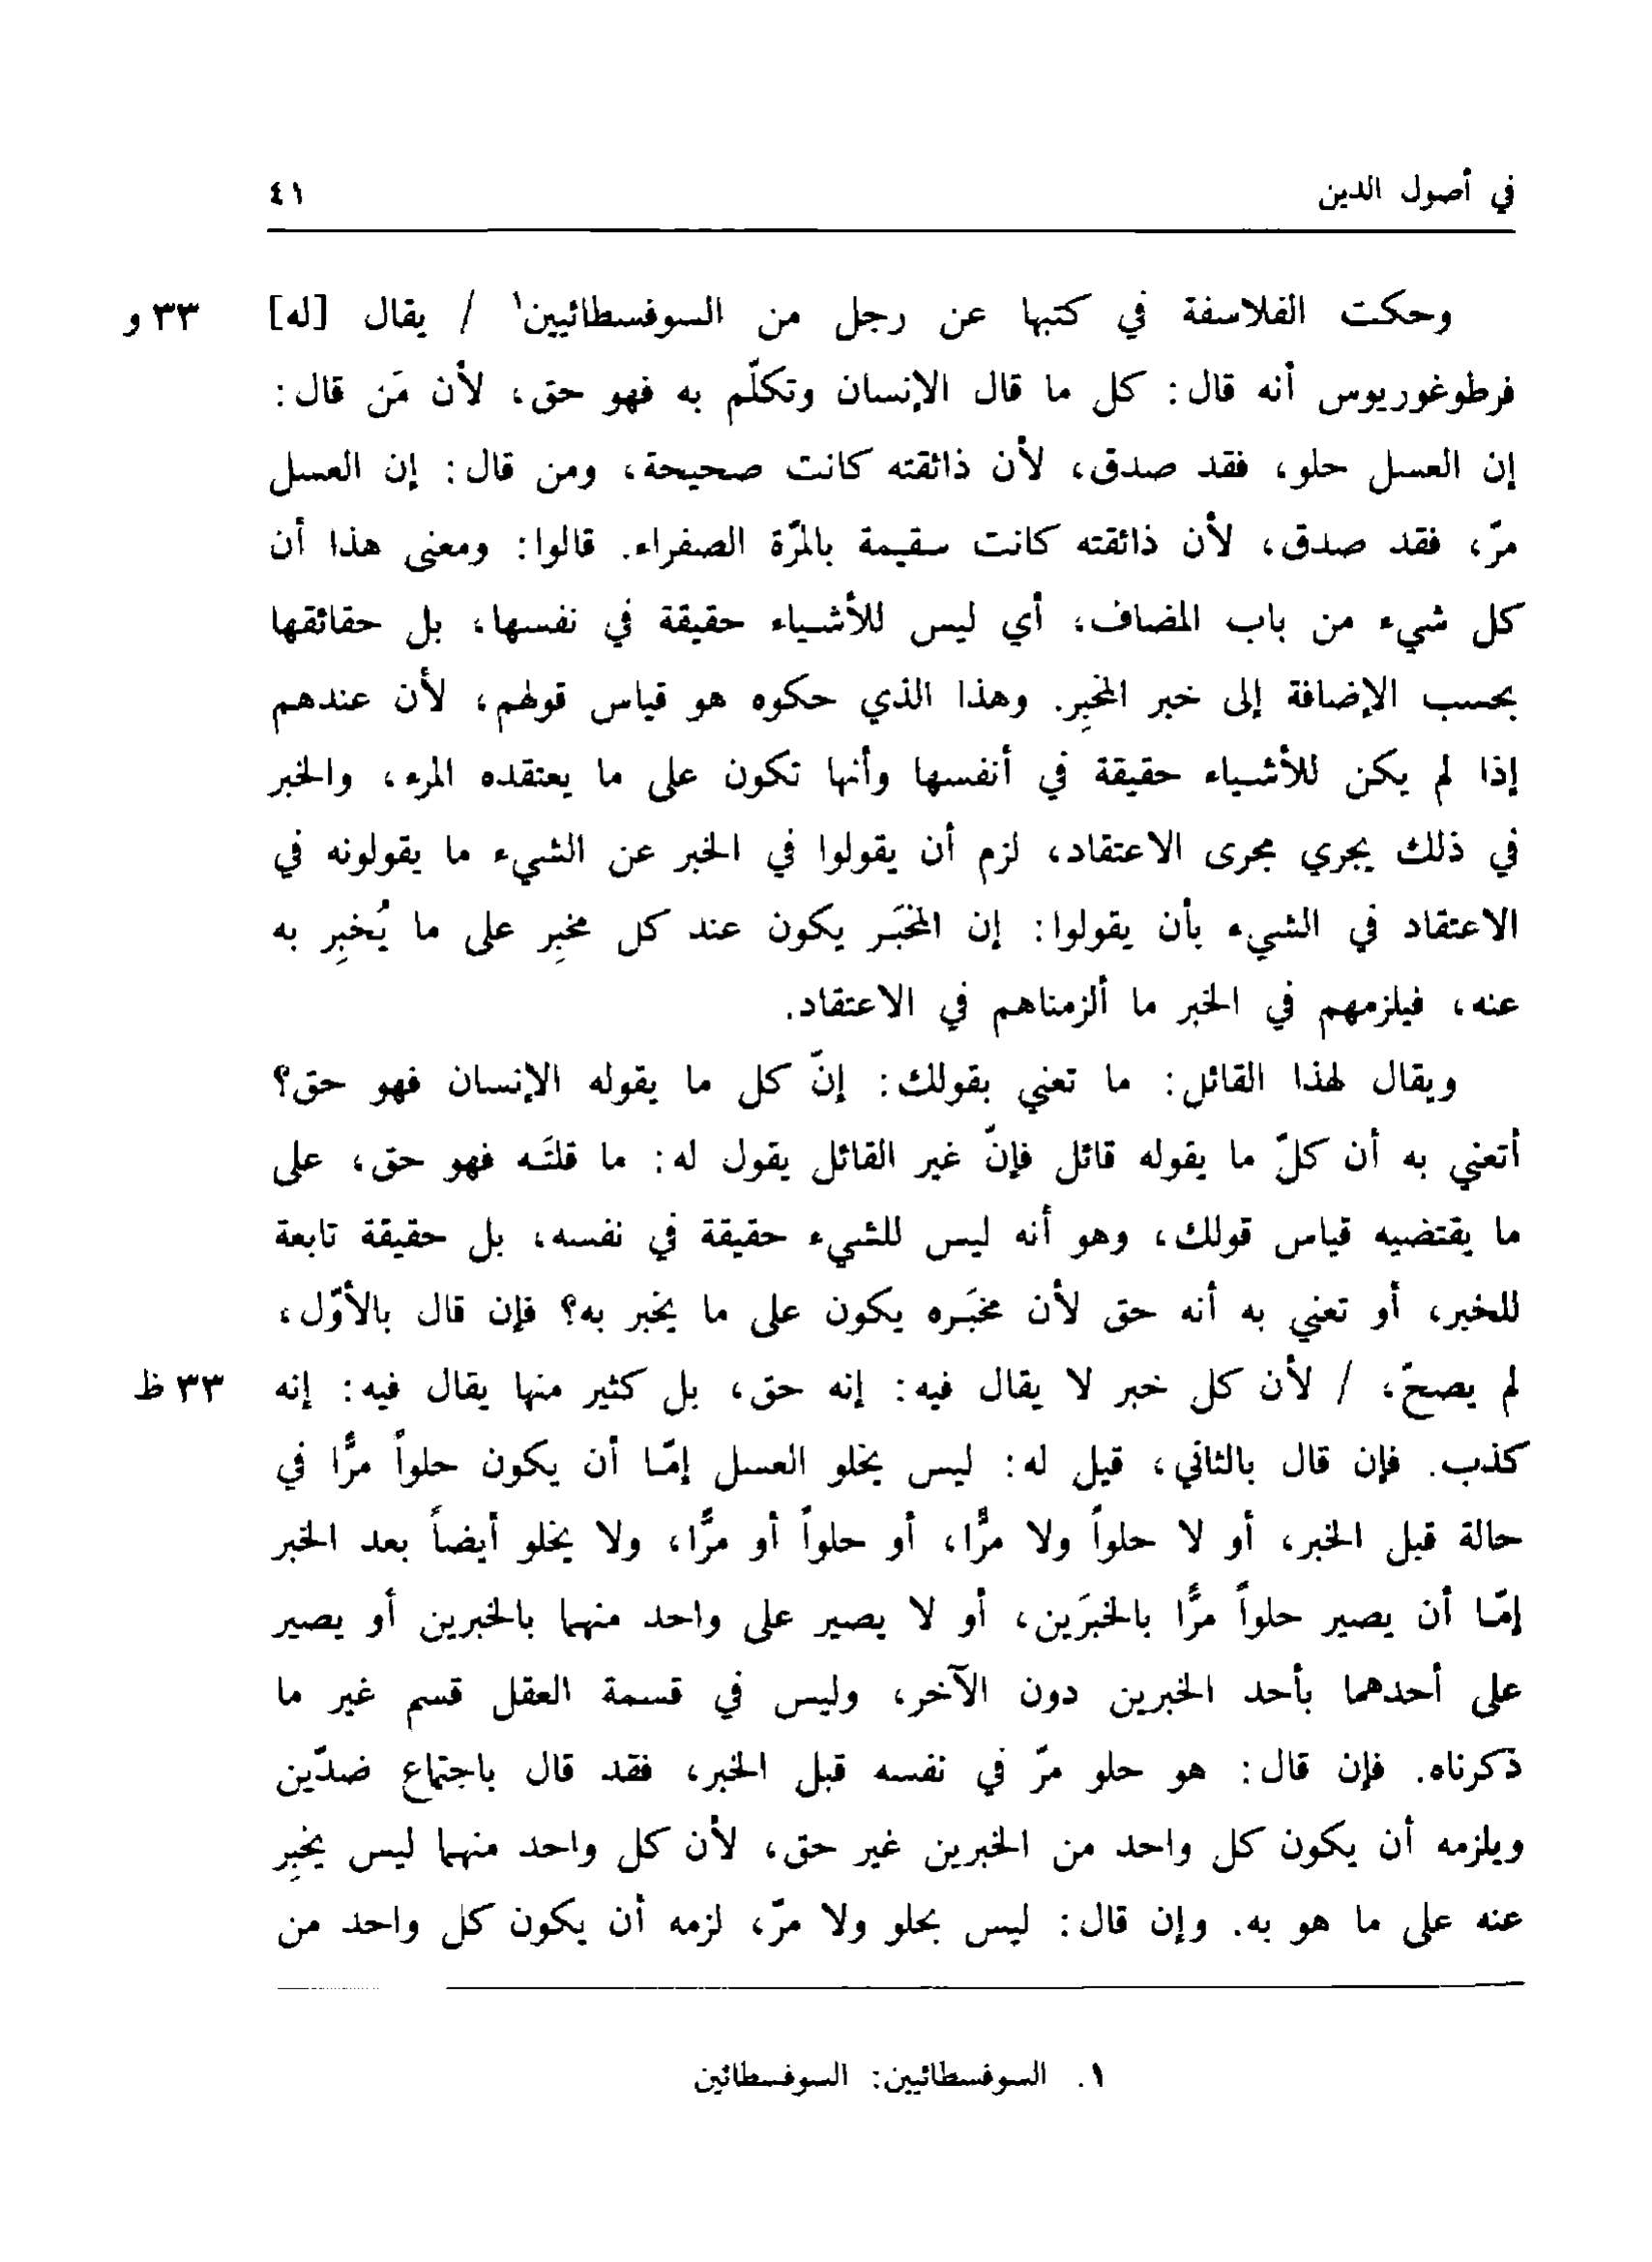 في أصول الدين ٤١
وحكت الفلاسفة في كتبها عن رجل من السوفسطائيين١ / يقال [له] ٣٣ و
فرطوغوريوس أنه قال: كل ما قال الإنسان وتكلّم به فهو حق، لأن مَن قال:
إن العسل حلو، فقد صدق، لأن ذائقته كانت صحيحة، ومن قال: إن العسل
مرّ، فقد صدق، لأن ذائقته كانت سقيمة بالمرّة الصفراء. قالوا: ومعنى هذا أن
كل شيء من باب المضاف، أي ليس للأشياء حقيقة في نفسها، بل حقائقها
بحسب الإضافة إلى خبر المخبِر. وهذا الذي حكوه هو قياس قولهم، لأن عندهم
إذا لم يكن للأشياء حقيقة في أنفسها وأنها تكون على ما يعتقده المرء، والخبر
في ذلك يجري مجرى الاعتقاد، لزم أن يقولوا في الخبر عن الشيء ما يقولونه في
الاعتقاد في الشيء بأن يقولوا: إن المخبَر يكون عند كل مخبِر على ما يُخبِر به
عنه، فيلزمهم في الخبر ما ألزمناهم في الاعتقاد.
ويقال لهذا القائل: ما تعني بقولك: إنّ كل ما يقوله الإنسان فهو حق؟
أتعني به أن كلّ ما يقوله قائل فإنّ غير القائل يقول له: ما قلتَه فهو حق، على
ما يقتضيه قياس قولك، وهو أنه ليس للشيء حقيقة في نفسه، بل حقيقة تابعة
للخبر، أو تعني به أنه حق لأن مخبَره يكون على ما يخبر به؟ فإن قال بالأوّل،
لم يصحّ، / لأن كل خبر لا يقال فيه: إنه حق، بل كثير منها يقال فيه: إنه ٣٣ ظ
كذب. فإن قال بالثاني، قيل له: ليس يخلو العسل إمّا أن يكون حلواً مرًّا في
حالة قبل الخبر، أو لا حلواً ولا مرًّا، أو حلواً أو مرًّا، ولا يخلو أيضاً بعد الخبر
إمّا أن يصير حلواً مرًّا بالخبرَين، أو لا يصير على واحد منهما بالخبرين أو يصير
على أحدهما بأحد الخبرين دون الآخر، وليس في قسمة العقل قسم غير ما
ذكرناه. فإن قال: هو حلو مرّ في نفسه قبل الخبر، فقد قال باجتماع ضدّين
ويلزمه أن يكون كل واحد من الخبرين غير حق، لأن كل واحد منهما ليس يخبِر
عنه على ما هو به. وإن قال: ليس بحلو ولا مرّ، لزمه أن يكون كل واحد من
١. السوفسطائيين: السوفسطائين